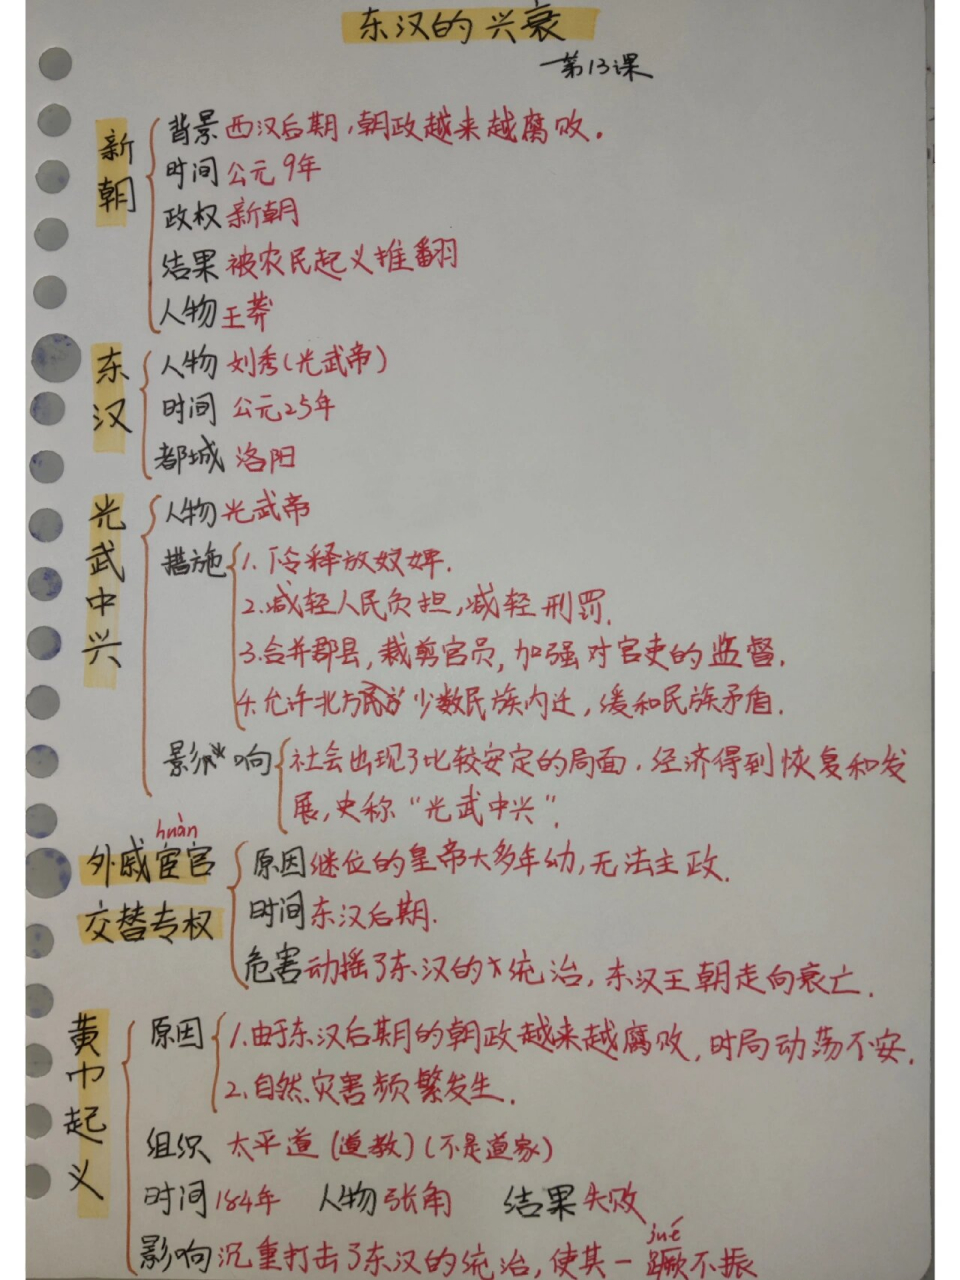 东汉的兴衰
第13课
新朝
背景 西汉后期,朝政越来越腐败.
时间 公元9年
政权 新朝
结果 被农民起义推翻
人物 王莽
东汉
人物 刘秀(光武帝)
时间 公元25年
都城 洛阳
光武中兴
人物 光武帝
措施 1.下令释放奴婢.
2.减轻人民负担,减轻刑罚.
3.合并郡县,裁剪官员,加强对官吏的监督.
4.允许北方 少数民族内迁,缓和民族矛盾.
影响 社会出现了比较安定的局面.经济得到恢复和发
展,史称“光武中兴”.
huàn
外戚宦官
交替专权
原因 继位的皇帝大多年幼,无法主政.
时间 东汉后期.
危害 动摇了东汉的统治,东汉王朝走向衰亡.
黄巾起义
原因 1.由于东汉后期的朝政越来越腐败,时局动荡不安.
2.自然灾害频繁发生.
组织 太平道(道教)(不是道家)
时间 184年 人物 张角 结果 失败
jué
影响 沉重打击了东汉的统治,使其一蹶不振